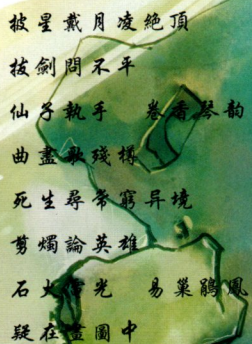 披星戴月凌絶頂
拔劍問不平
仙子執手　卷香琴韵
曲盡歌殘樽
死生尋常窮异境
剪燭論英雄
石火雪光　易巢鵑鳳
疑在畫圖中